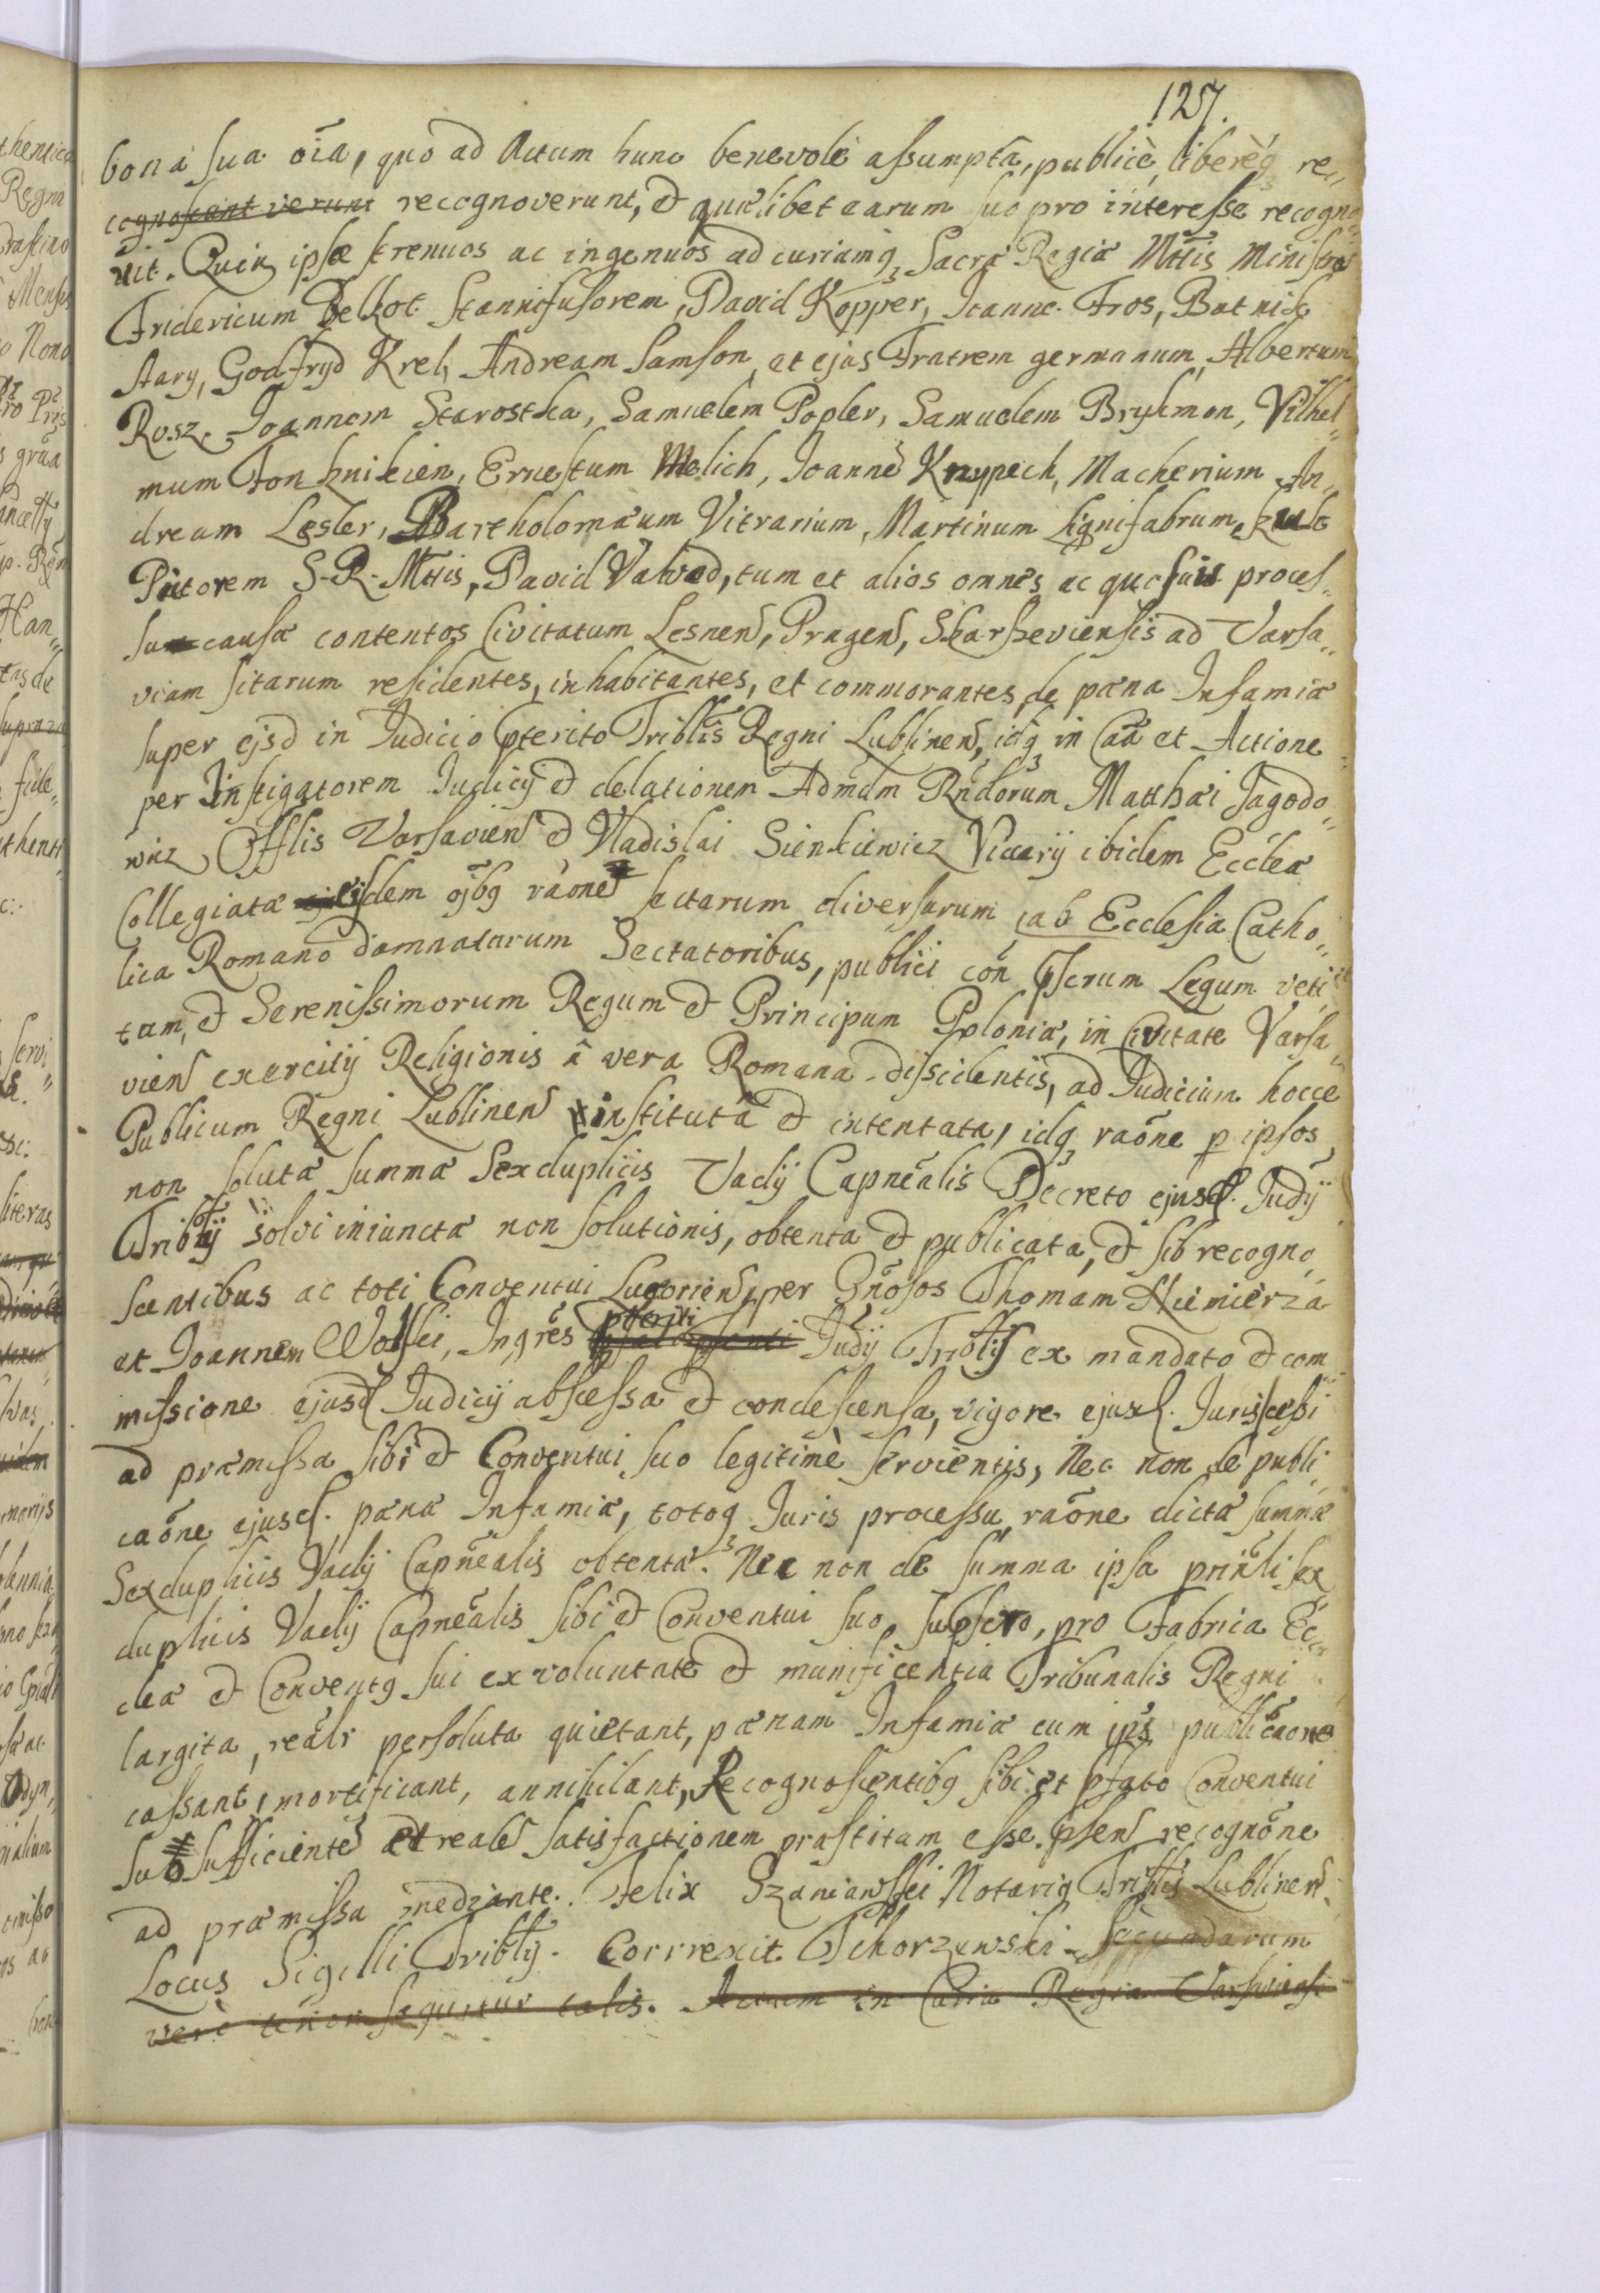 1257.
bona sua oĩa, quo ad Actum hunc benevolè assumptã, publicè, liberèq re„
cognoscant verunt recognoverunt, et quælibet earum suo pro interesse recogno„
vit. Quia ipsæ strenuos ac ingenuos ad curiamq Sacræ Regiæ Mttis Ministros
Fridericum Belkot Stannifusorem, David Kopper, Joanne Fros, Batnik
Stary, Godfryd Krel, Andream Samson, et ejus Fratrem germanum, Albertum
Rosz. Joannem Starostka, Samuelem Popler, Samuelem Brykmon, Vilhel„
mum Fon hnikien, Ernestum Melich, Joannẽ Knypech, Macherium An„
dream Lesler, Bartholomæum Vitrarium, Martinum Lignifabrum,
Pictorem S. R. Mttis, David Valvod, tum et alios omnes ac quosuis proces„
su causæ contentos Civitatum Lesnen, Pragen, Skarszeviensis ad Varsa„
viam sitarum residentes, inhabitantes, et commorantes, de pæna Infamiæ
super ejsd in Judicio pterito Triblis Regni Lublinen, idq in Caã et Actione
per Instigatorem Judicij et delationem Admdm Rndorum Matthæi Jagodo„
wicz Offlis Varsavien et Vladislai Sienkiewicz Vicarij ibidem Ecclæ
Collegiatæ eisdem ojbq raõne sectarum diversarum ab Ecclesia Catho„
lica Romanõ damnatarum Sectatoribus, publici con pscrum Legum veti
tum, et Serenissimorum Regum et Principum Poloniæ, in Civitate Varsa„
vien exercitij Religionis à vera Romana dissidentis, ad Judicium hocce
Publicum Regni Lublinen instituta et intentata, idq raõne p ipsos
non soluta summa Sexduplicis Vadij Capnealis Decreto ejusd. Judij
Triblij solvi iniuncta non solutionis, obtenta et publicata, et sib recogno„
scentibus ac toti Conventui Lugorien, per Gnosos Thomam Niemierza
et Joannem Wolski, Ingres pteriti Judij Triblis ex mandato et com„
missione ejusd Judicij abscessa et condescensa, vigore ejusd. Juriscessi
ad præmissa sibi et Conventui suo legitimè servientis, Nec non de publi„
caõne ejusd. pænæ Infamiæ, totoq Juris processu raõne dictæ summæ
Sexduplicis Vadij Capnealis obtentæ. Nec non de summa ipsa prinli sex
duplicis Vadij Capnealis sibi et Conventui suo, supscro, pro Fabrica Ec„
cleæ et Conventq sui ex voluntate et munificentia Tribunalis Regni
largita, reali persoluta quietant, pænam Infamiæ cum ips publicaõne
cassant, mortificant, annihilant, Recognoscentibq sibi et pfato Conventui
suo sufficientẽ et realẽ satisfactionem præstitam esse. psen recognõne
ad præmissa medjante. Felix Szaniawski Notariq Triblis Lublinen.
Locus Sigilli Triblij. Correxit Tchorzewski. Secundarum
verò tenor sequitur talis. Actum in Curia Regia Varsaviensi